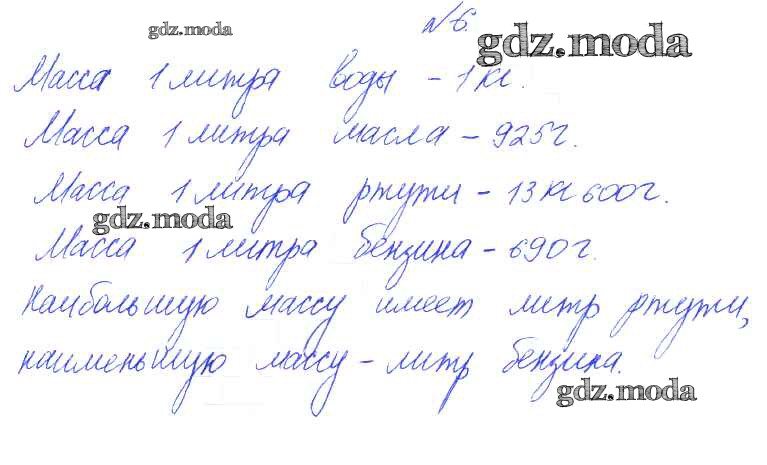 gdz.moda
№6.
gdz.moda
Масса 1 литра воды - 1 кг.
Масса 1 литра масла - 925 г.
Масса 1 литра ртути - 13 кг 600 г.
gdz.moda
Масса 1 литра бензина - 690 г.
Наибольшую массу имеет литр ртути,
наименьшую массу - литр бензина.
gdz.moda